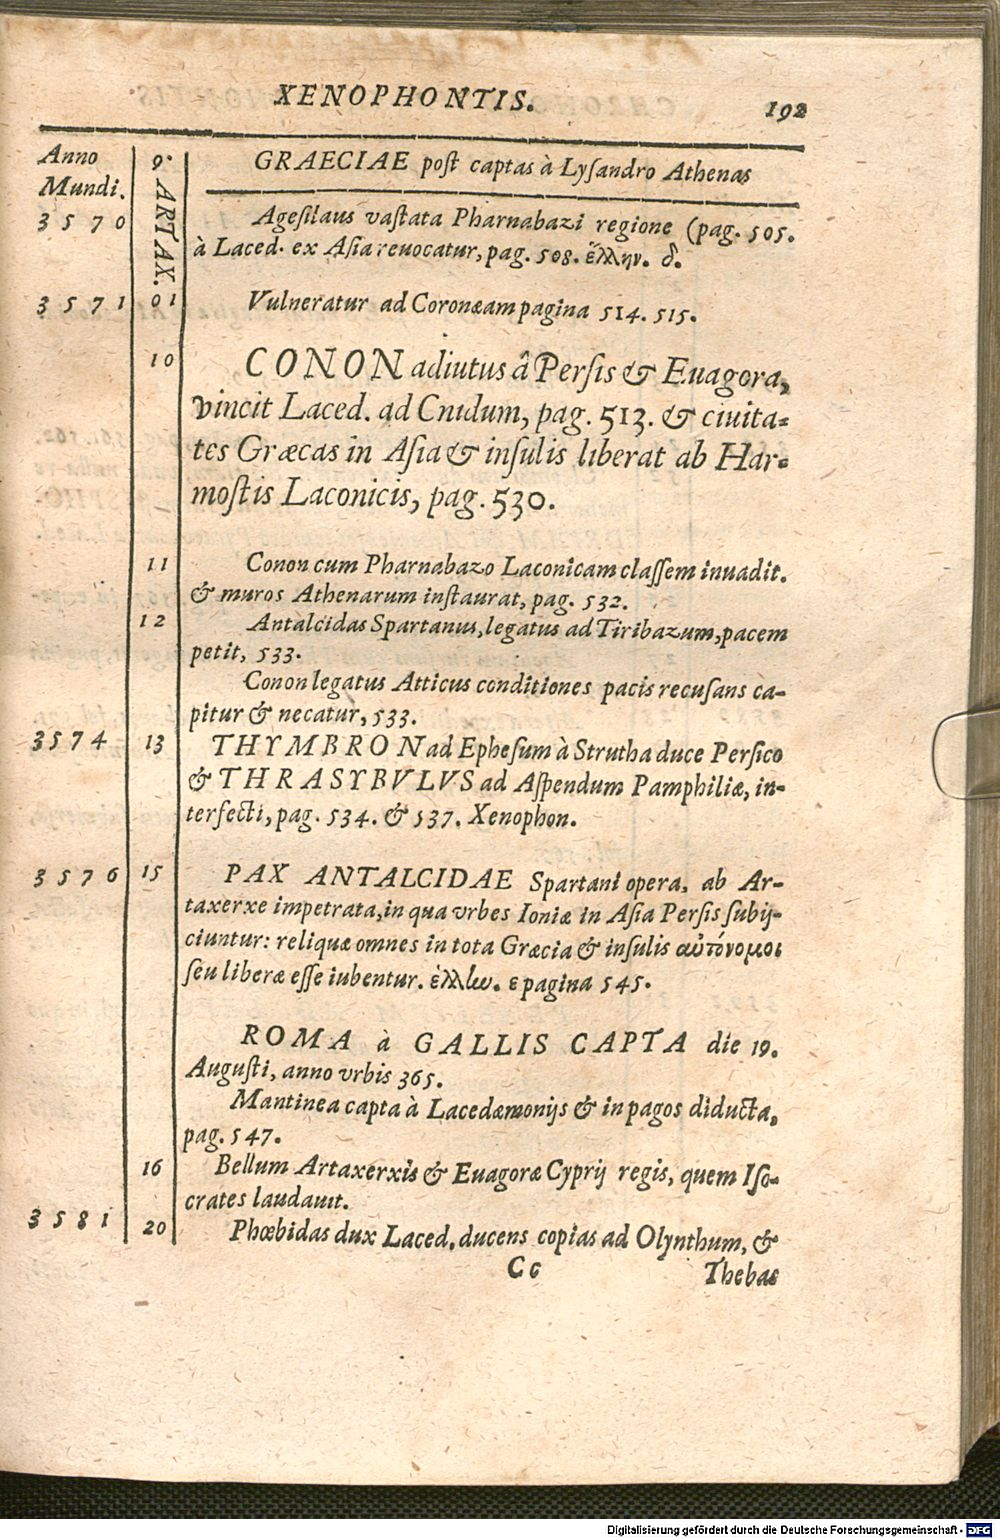 XENOPHONTIS. 192
Anno Mundi. 9. ARTAX. GRAECIAE post captas à Lysandro Athenas
3570 Agesilaus vastata Pharnabazi regione (pag. 505.
à Laced. ex Asia reuocatur, pag. 508. ἕλλην. δ.
3571 01 Vulneratur ad Coronæam pagina 514. 515.
10 CONON adiutus â Persis & Euagora,
vincit Laced. ad Cnidum, pag. 513. & ciuita-
tes Græcas in Asia & insulis liberat ab Har-
mostis Laconicis, pag. 530.
11 Conon cum Pharnabazo Laconicam classem inuadit.
& muros Athenarum instaurat, pag. 532.
12 Antalcidas Spartanus, legatus ad Tiribazum, pacem
petit, 533.
Conon legatus Atticus conditiones pacis recusans ca-
pitur & necatur, 533.
3574 13 THYMBRON ad Ephesum à Strutha duce Persico
& THRASYBVLVS ad Aspendum Pamphiliæ, in-
terfecti, pag. 534. & 537. Xenophon.
3576 15 PAX ANTALCIDAE Spartani opera, ab Ar-
taxerxe impetrata, in qua vrbes Ioniæ in Asia Persis subij-
ciuntur: reliquæ omnes in tota Græcia & insulis αὐτόνομοι
seu liberæ esse iubentur. ἑλλων. ε pagina 545.
ROMA à GALLIS CAPTA die 19.
Augusti, anno vrbis 365.
Mantinea capta à Lacedæmonijs & in pagos diducta,
pag. 547.
16 Bellum Artaxerxis & Euagoræ Cyprij regis, quem Iso-
crates laudauit.
3581 20 Phœbidas dux Laced. ducens copias ad Olynthum, &
Cc Thebas
Digitalisierung gefördert durch die Deutsche Forschungsgemeinschaft - DFG